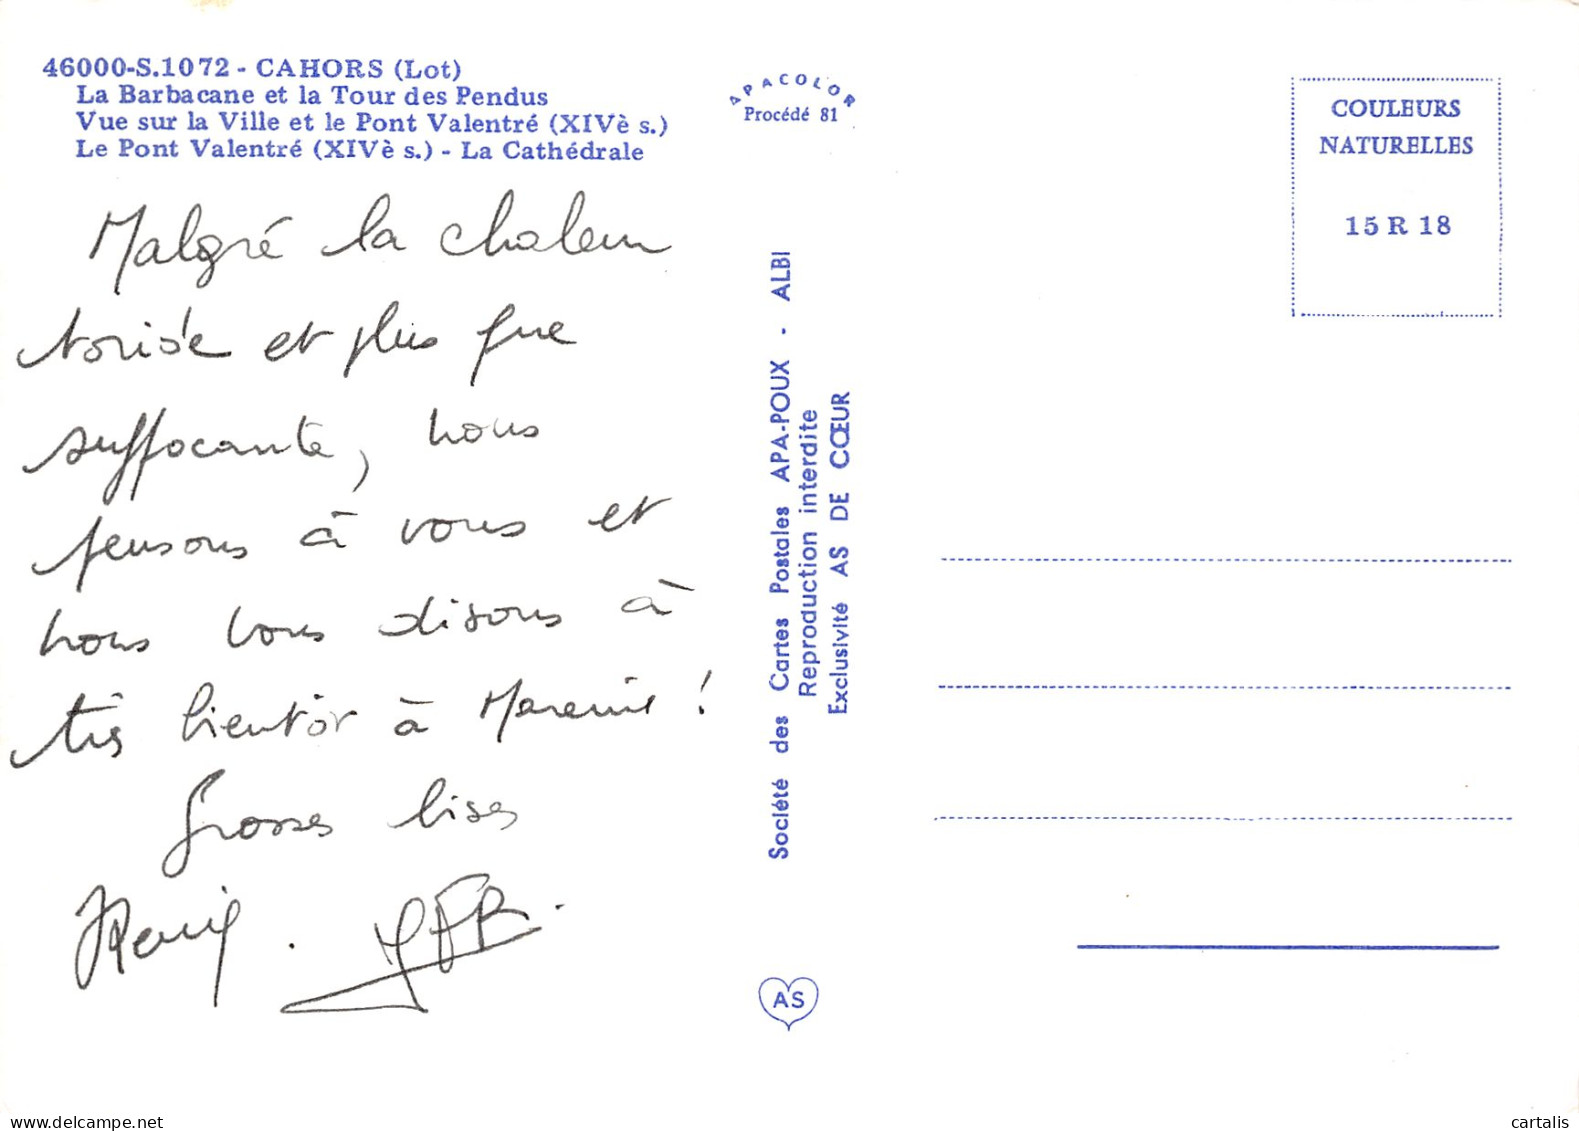 46000-S.1072 - CAHORS (Lot)
La Barbacane et la Tour des Pendus
Vue sur la Ville et le Pont Valentré (XIVè s.)
Le Pont Valentré (XIVè s.) - La Cathédrale
APACOLOR
Procédé 81
COULEURS
NATURELLES
15 R 18
Malgré la chaleur
toride et plus que
suffocante, nous
pensons à vous et
nous vous disons à
très bientôt à Mareuil !
Grosses bises
Société des Cartes Postales APA-POUX - ALBI
Reproduction interdite
Exclusivité AS DE CŒUR
AS
cartalis
delcampe.net